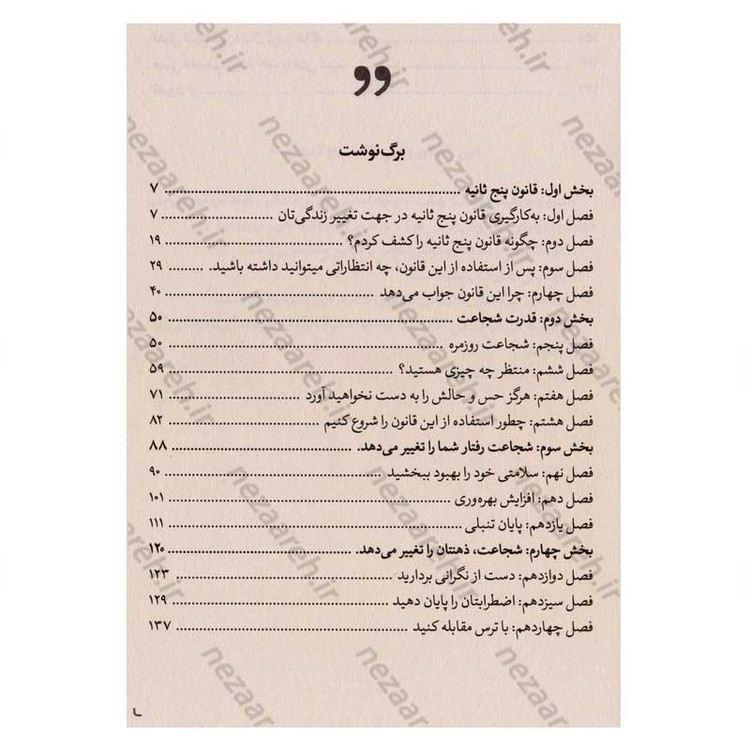 برگ‌نوشت
بخش اول: قانون پنج ثانیه ........ ۷
فصل اول: به‌کارگیری قانون پنج ثانیه در جهت تغییر زندگی‌تان ........ ۷
فصل دوم: چگونه قانون پنج ثانیه را کشف کردم؟ ........ ۱۹
فصل سوم: پس از استفاده از این قانون، چه انتظاراتی میتوانید داشته باشید. ........ ۲۹
فصل چهارم: چرا این قانون جواب می‌دهد ........ ۴۰
بخش دوم: قدرت شجاعت ........ ۵۰
فصل پنجم: شجاعت روزمره ........ ۵۰
فصل ششم: منتظر چه چیزی هستید؟ ........ ۵۹
فصل هفتم: هرگز حس و حالش را به دست نخواهید آورد ........ ۷۱
فصل هشتم: چطور استفاده از این قانون را شروع کنیم ........ ۸۲
بخش سوم: شجاعت رفتار شما را تغییر می‌دهد. ........ ۸۸
فصل نهم: سلامتی خود را بهبود ببخشید ........ ۹۰
فصل دهم: افزایش بهره‌وری ........ ۱۰۱
فصل یازدهم: پایان تنبلی ........ ۱۱۱
بخش چهارم: شجاعت، ذهنتان را تغییر می‌دهد. ........ ۱۲۰
فصل دوازدهم: دست از نگرانی بردارید ........ ۱۲۳
فصل سیزدهم: اضطرابتان را پایان دهید ........ ۱۲۹
فصل چهاردهم: با ترس مقابله کنید ........ ۱۳۷
nezaareh.ir